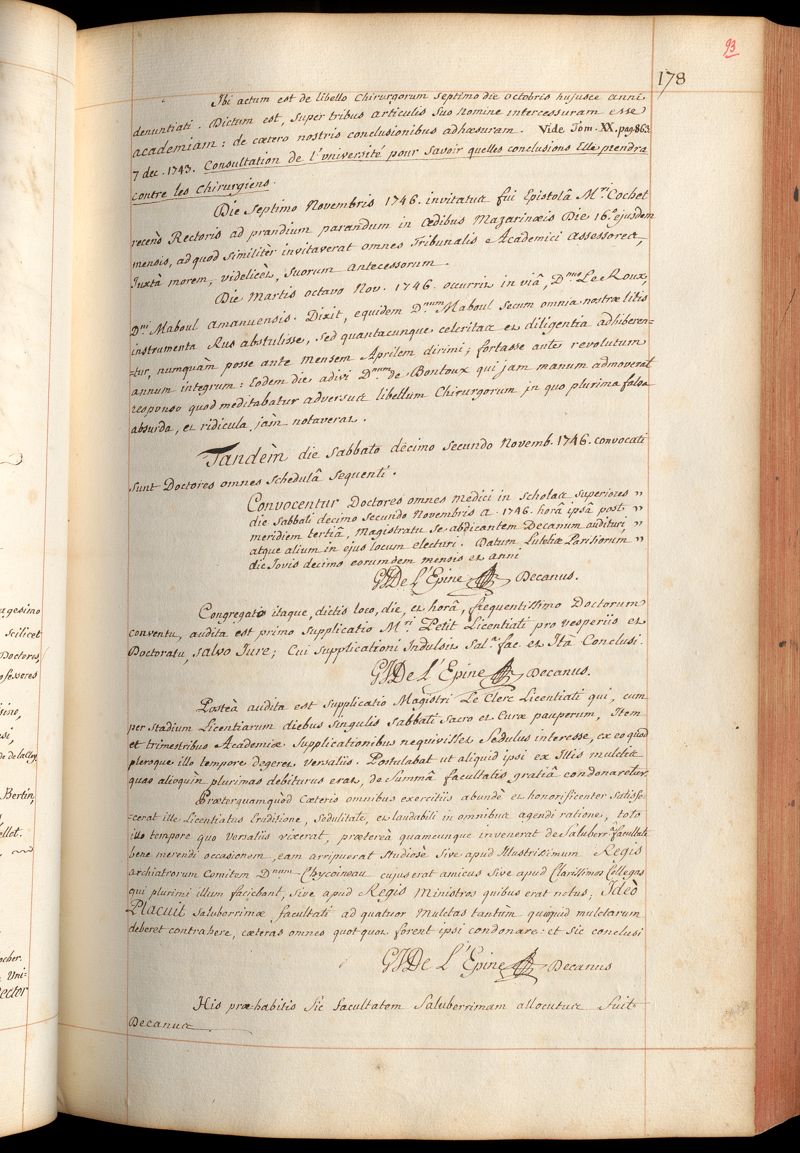 93
178
Ibi actum est de libello Chirurgorum septimo die octobris hujusce anni
denuntiati. Dictum est, super tribus articulis suo nomine intercessuram esse
academiam: de cætero nostris conclusionibus adhæsuram. Vide Tom. XX. pag 863
7 dec. 1743. Consultation de l'université pour savoir quelles conclusions Elle prendra
contre les Chirurgiens.
Die Septimo Novembris 1746. invitatus fui Epistolâ M.ri Cochet
recens Rectoris ad prandium parandum in Œdibus Mazarinæis Die 16.a ejusdem
mensis, ad quod similitèr invitaverat omnes Tribunalis Academici assessores,
Juxtà morem, videlicèt, suorum antecessorum.
Die Martis octavo Nov. 1746. occurrit in viâ, D.nus Le Roux,
D.ni Maboul amanuensis. Dixit, equidem D.num Maboul secum omnia nostræ litis
instrumenta Rus abstulisse, sed quantacunque celeritas et diligentia adhiberen-
-tur, numquàm posse ante Mensem Aprilem dirimi; fortasse antè revolutum
annum integrum: eodem die adivi D.num de Bontoux qui jam manum admoverat
responso quod meditabatur adversus libellum Chirurgorum in quo plurima falsa
absurda, et ridicula jàm notaverat.
Tandèm die sabbato decimo secundo Novemb. 1746. convocati
sunt Doctores omnes schedulâ sequenti.
Convocentur Doctores omnes medici in scholas superiores "
die sabbati decimo secundo Novembris a. 1746. horâ ipsâ post "
meridiem tertiâ, Magistratu se abdicantem Decanum audituri, "
atque alium in ejus locum electuri. Datum Lutetiæ Parisiorum "
die Jovis decimo eorumdem mensis et anni
GJDe L'Epine Decanus.
Congregatis itaque, dictis loco, die, et horâ, frequentissimo Doctorum
conventu, audita est primo supplicatio M.ri Petit Licentiati pro vesperiis et
Doctoratu, salvo Jure; Cui supplicationi Indulsit Sal.a fac. et Ità Conclusi.
GJDe L'Epine Decanus.
Posteà audita est supplicatio Magistri Le Clerc Licentiati qui, cum
per stadium Licentiarum diebus singulis sabbati sacro et Curæ pauperum, Item
et trimestribus Academiæ supplicationibus nequivisset sedulus interesse, ex eo quod
pleroque illo tempore degeret versaliis. Postulabat ut aliquid ipsi ex Illis mulctis
quas alioquin plurimas debiturus erat, de summâ facultatis gratiâ condonaretur.
Præterquamquòd Cæteris omnibus exercitiis abundè et honorificenter satisfe-
-cerat ille Licentiatus Eruditione, sedulitate, et laudabili in omnibus agendi ratione, toto
illo tempore quo versaliis vixerat, prætereà quamcunque invenerat de saluberr.a facultate
bene merendi occasionem, eam arripuerat studiosè sive apud Illustrissimum Regis
archiatrorum Comitem D.num Chycoineau cujus erat amicus sive apud Clarissimos Collegas
qui plurimi illum faciebant, sive apud Regis Ministros quibus erat notus, Ideò
Placuit saluberrimæ facultati ad quatuor Mulctas tantùm quicquid mulctarum
deberet contrahere, cæteras omnes quotquot forent ipsi condonare: et sic conclusi
GJDe L'Epine Decanus
His præhabitis sic facultatem saluberrimam allocutus fuit
Decanus
agesimo
scilicet
Doctores,
ofessores
Bertin,
llot.
Uni-
Rector